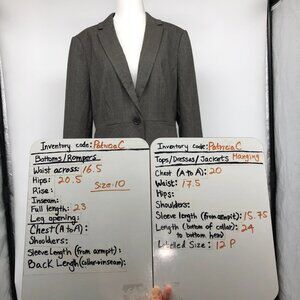 Inventory code: Patricia C
Bottoms/Rompers
Waist across: 16.5
Hips: 20.5
Rise:
Size: 10
Inseam:
Full length: 23
Leg opening:
Chest (A to A):
Shoulders:
Sleeve Length (from armpit):
Back Length (collar→inseam):
Inventory code: Patricia C
Tops/Dresses/Jackets Hanging
Chest (A to A): 20
Waist: 17.5
Hips:
Shoulders:
Sleeve length (from armpit): 15.75
Length (bottom of collar): 24
to bottom hem)
Labelled Size: 12 P